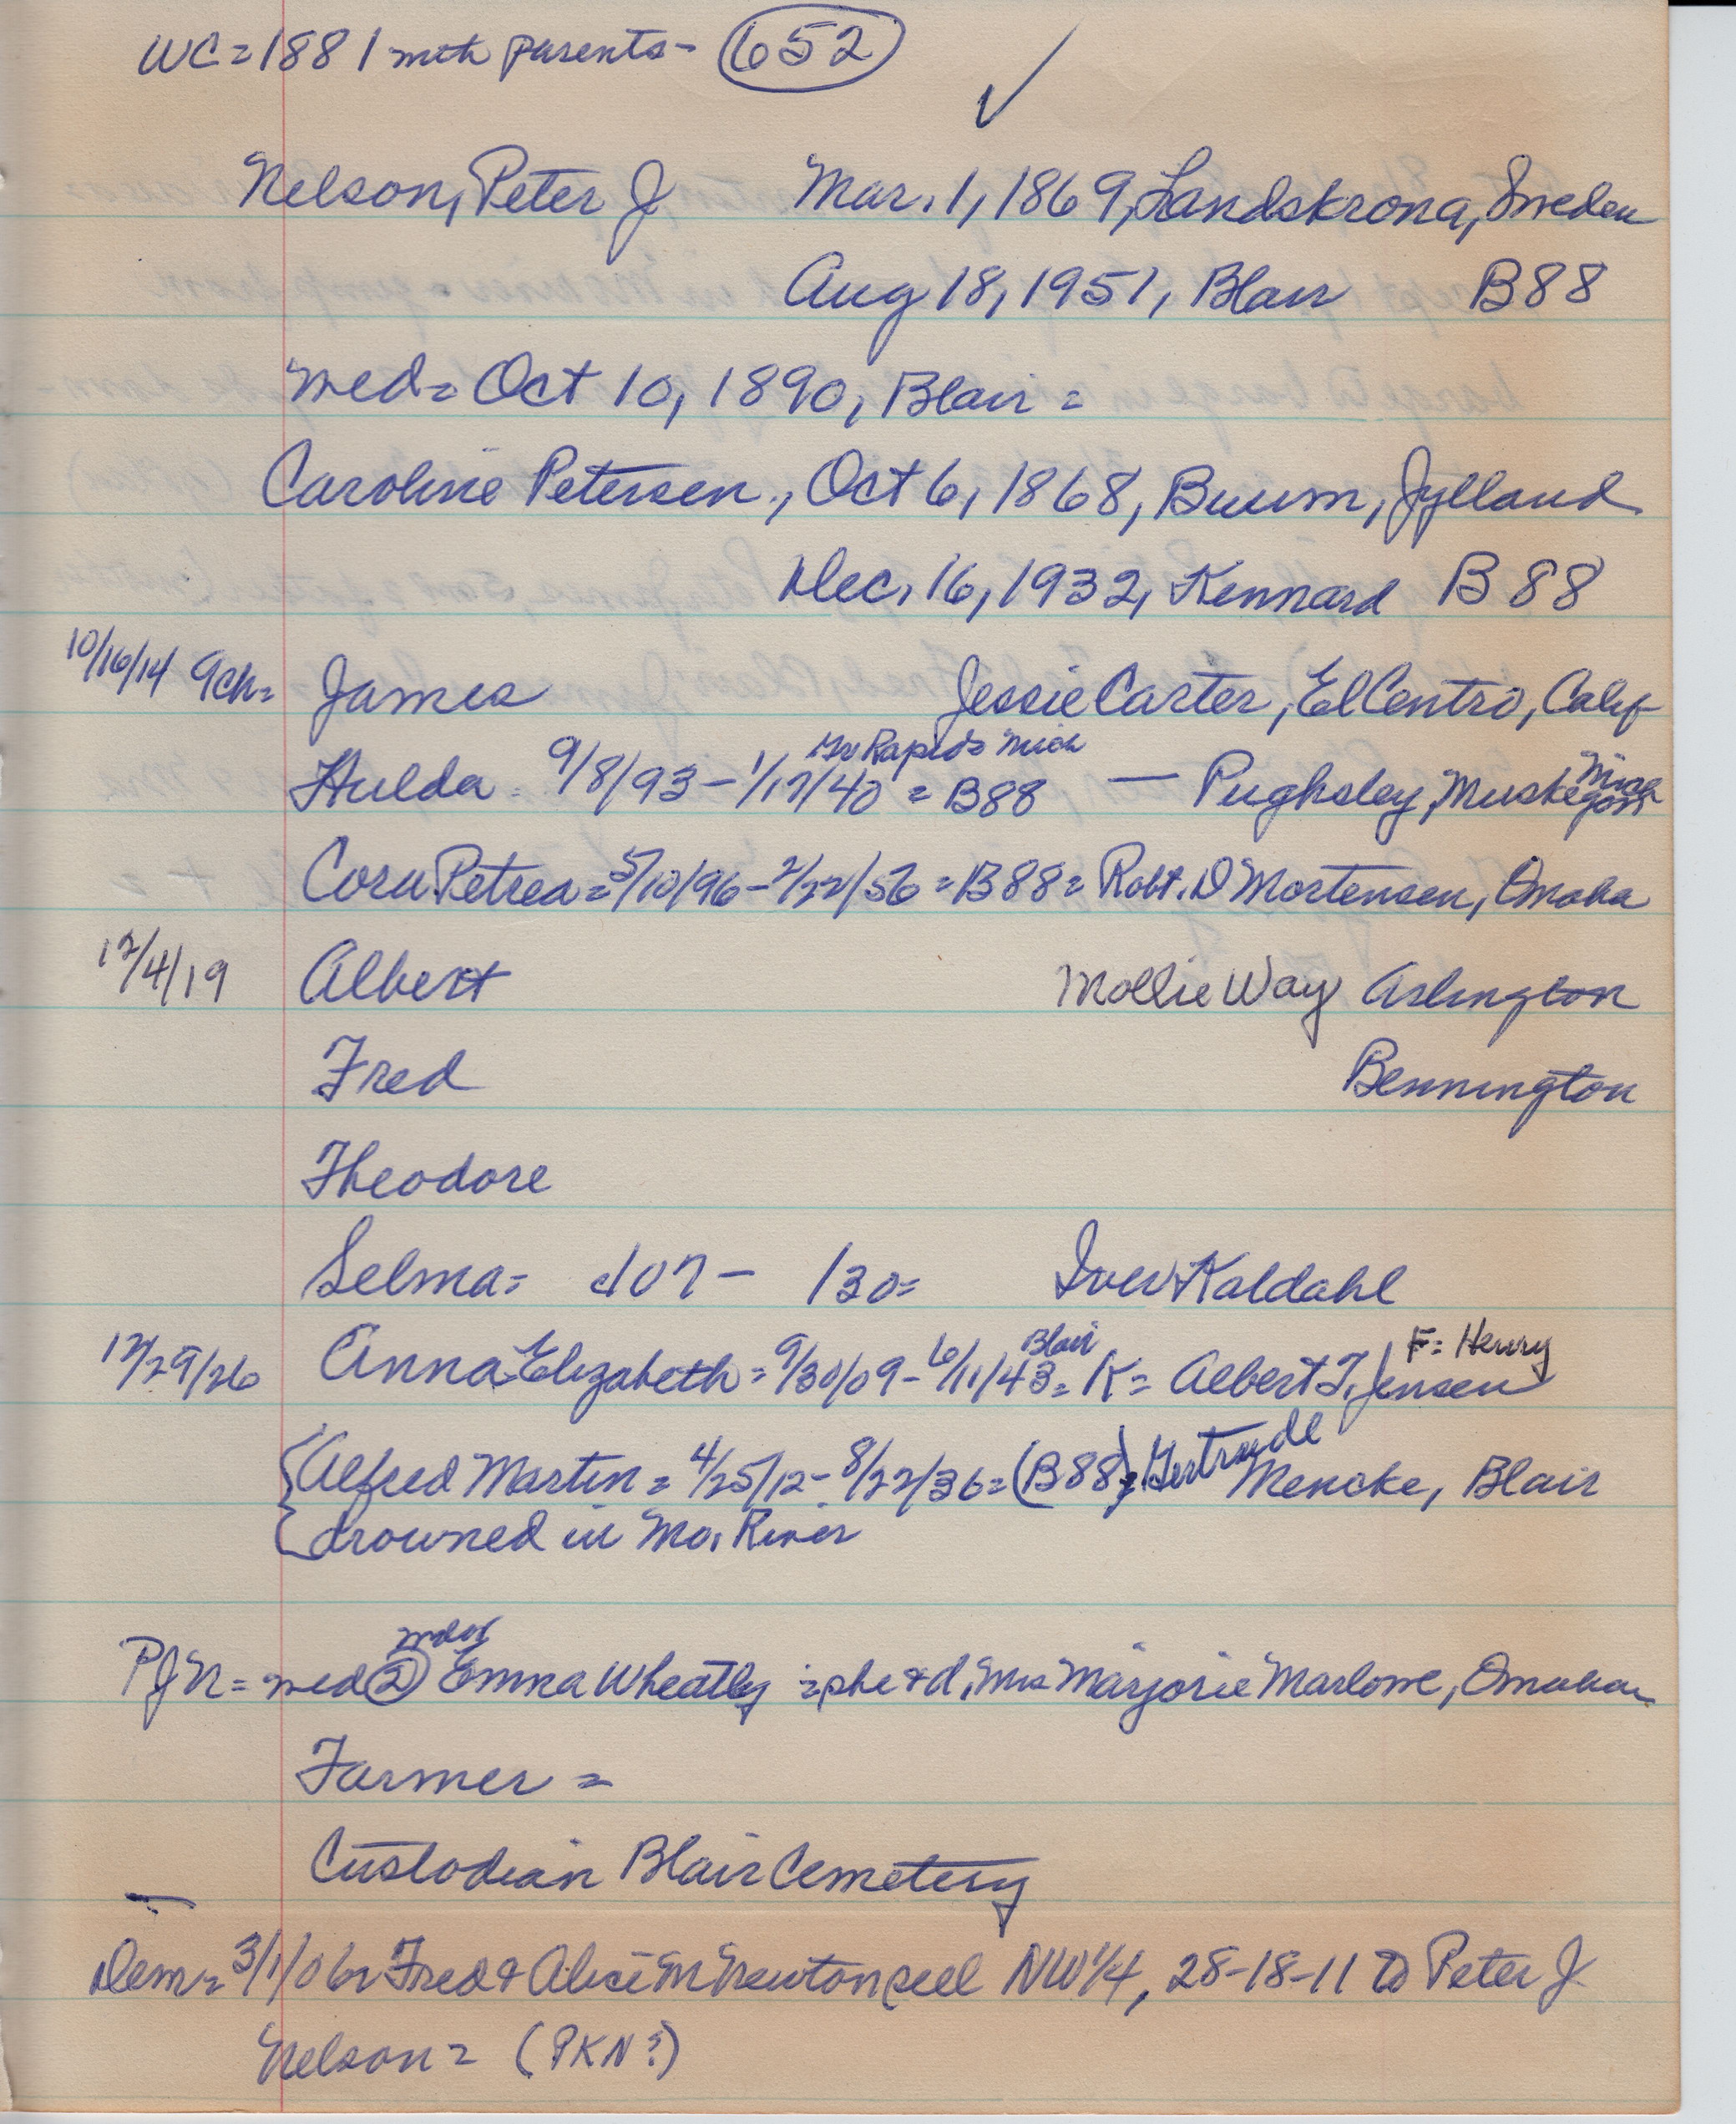 WC = 1881 with parents - 652
✓
Nelson, Peter J Mar. 1, 1869, Landskrona, Sweden
Aug 18, 1951, Blair B88
med = Oct 10, 1890, Blair =
Caroline Petersen, Oct 6, 1868, Buum, Jylland
Dec. 16, 1932, Kennard B88
10/16/14 9ch = James Jessie Carter, El Centro, Calif
Gr Rapids Mich
Hulda 9/8/93 - 1/17/40 = B88 — Pughsley, Muskegon Mich
Cora Petrea = 5/10/96 - 2/22/56 = B88 = Robt. D Mortensen, Omaha
12/4/19 Albert Mollie Way Arlington
Fred Bennington
Theodore
Selma = 107 - 130 = Iver Kaldahl
Blair F: Henry
12/29/26 Anna Elizabeth = 9/30/09 - 6/11/43 = K = Albert T. Jensen
Alfred Martin = 4/25/12 - 8/22/36 = (B88) = Gertrude Mencke, Blair
drowned in Mo. River
PJN = med 2 Emma Wheatly = she & d, Mrs Marjorie Marlowe, Omaha
Farmer =
Custodian Blair Cemetery
Dem = 3/1/06 = Fred & Alice M Newton sell NW 1/4, 28-18-11 to Peter J
Nelson = (PKN?)